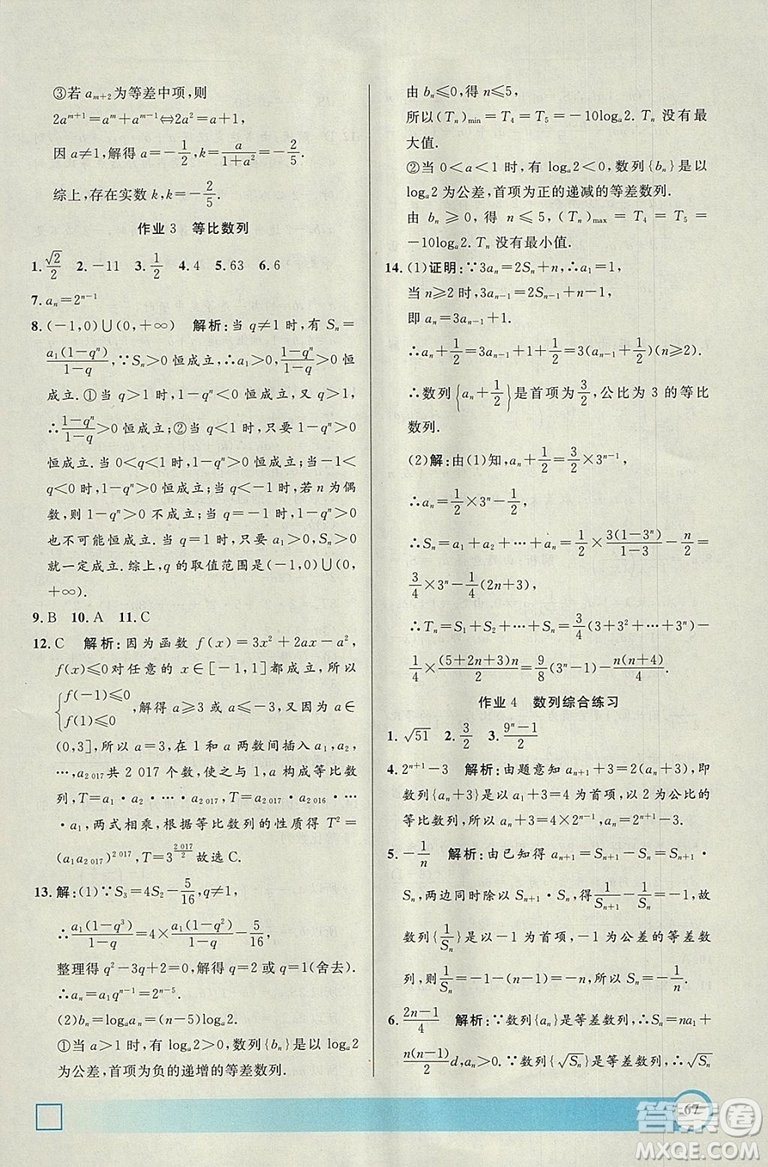 ③若 a_{m+2} 为等差中项,则
2a^{m+1}=a^m+a^{m-1}⇔2a^2=a+1,
因 a≠1,解得 a=-1/2,k=a/(1+a^2)=-2/5.
综上,存在实数 k=-2/5.
作业 3 等比数列
1.√2/2 2.-11 3.1/2 4.4 5.63 6.6
7.a_n=2^{n-1}
8.(-1,0)∪(0,+∞) 解析:当 q≠1 时,有 S_n=
a_1(1-q^n)/(1-q),∵S_n>0 恒成立,∴a_1>0,(1-q^n)/(1-q)>0 恒
成立.①当 q>1 时,1-q^n<0 恒成立,
∴(1-q^n)/(1-q)>0 恒成立;②当 q<1 时,只要 1-q^n>0
恒成立,当 0<q<1 时,恒成立,当-1<q<0
时,1-q^n>0 也恒成立,当 q<-1 时,若 n 为偶
数,则 1-q^n>0 不成立;当 q=-1 时,1-q^n>0
也不可能恒成立.当 q=1 时,只要 a_1>0,S_n>0
就一定成立.综上,q 的取值范围是(-1,0)∪(0,
+∞).
9.B 10.A 11.C
12.C 解析:因为函数 f(x)=3x^2+2ax-a^2,
f(x)≤0 对任意的 x∈[-1,1]都成立,所以
{f(-1)≤0 f(1)≤0,解得 a≥3 或 a≤-3,又因为 a∈
(0,3],所以 a=3,在 1 和 a 两数间插入 a_1,a_2,
…,a_{2 017}共 2 017 个数,使之与 1,a 构成等比数
列,T=a_1·a_2·…·a_{2 017},T=a_{2 017}·a_{2 016}·…
·a_1,两式相乘,根据等比数列的性质得 T^2=
(a_1a_{2 017})^{2 017},T=3^{2 017/2}故选 C.
13.解:(1)∵S_3=4S_2-5/16,q≠1,
∴a_1(1-q^3)/(1-q)=4×a_1(1-q^2)/(1-q)-5/16,
整理得 q^2-3q+2=0,解得 q=2,q=1(舍去).
∴a_n=a_1q^{n-1}=2^{n-5}.
(2)b_n=log_a a_n=(n-5)log_a 2.
①当 a>1 时,有 log_a 2>0,数列{b_n}是以 log_a 2
为公差,首项为负的递增的等差数列.
由 b_n≤0,得 n≤5,
所以(T_n)_min=T_4=T_5=-10log_a 2.T_n 没有最
大值.
②当 0<a<1 时,有 log_a 2<0,数列{b_n}是以
log_a 2 为公差,首项为正的递减的等差数列.
由 b_n≥0,得 n≤5,(T_n)_max=T_4=T_5=
-10log_a 2,T_n 没有最小值.
14.(1)证明:∵3a_n=2S_n+n,∴a_1=1,
当 n≥2 时,3a_{n-1}=2S_{n-1}+n-1,
即 a_n=3a_{n-1}+1.
∴a_n+1/2=3a_{n-1}+1+1/2=3(a_{n-1}+1/2)(n≥2).
∴数列{a_n+1/2}是首项为3/2,公比为 3 的等比
数列.
(2)解:由(1)知,a_n+1/2=3/2×3^{n-1},
∴a_n=1/2×3^n-1/2,
∴S_n=a_1+a_2+…+a_n=1/2×3(1-3^n)/(1-3)-n/2=
3/4×3^n-1/4(2n+3),
∴T_n=S_1+S_2+…+S_n=3/4(3+3^2+…+3^n)-
1/4×(5+2n+3)n/2=9/8(3^n-1)-n(n+4)/4.
作业 4 数列综合练习
1.√51 2.3/2 3.(9^n-1)/2
4.2^{n+1}-3 解析:由题意知 a_{n+1}+3=2(a_n+3),即
数列{a_n+3}是以 a_1+3=4 为首项,以 2 为公比的
等比数列,所以 a_n+3=4×2^{n-1},a_n=2^{n+1}-3.
5.-1/n 解析:由已知得 a_{n+1}=S_{n+1}-S_n=S_{n+1}·
S_n,两边同时除以 S_{n+1}·S_n,得1/S_{n+1}-1/S_n=-1,故
数列{1/S_n}是以-1 为首项,-1 为公差的等差数
列,则1/S_n=-1-(n-1)=-n,所以 S_n=-1/n.
6.(2n-1)/4 解析:∵数列{a_n}是等差数列,∴S_n=na_1+
n(n-1)/2 d,a_n>0.∵数列{√S_n}是等差数列,∴√S_n
67
答案圈
MXQE.COM